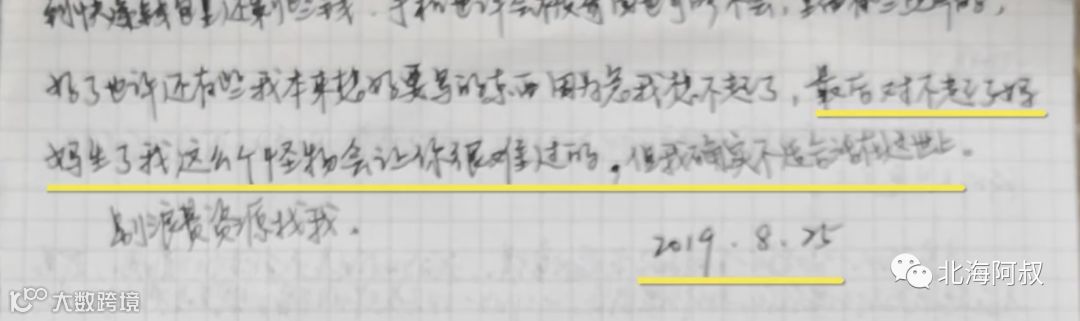 到快递钱包里还剩些钱.手机也许会
好了也许还有些我本来想好要写的东西因为完我想不起了，最后对不起了妈
妈生了我这么个怪物会让你很难过的，但我确实不适合活在这世上。
别浪费资源找我。
2019.8.25
北海阿叔
100 大数跨境